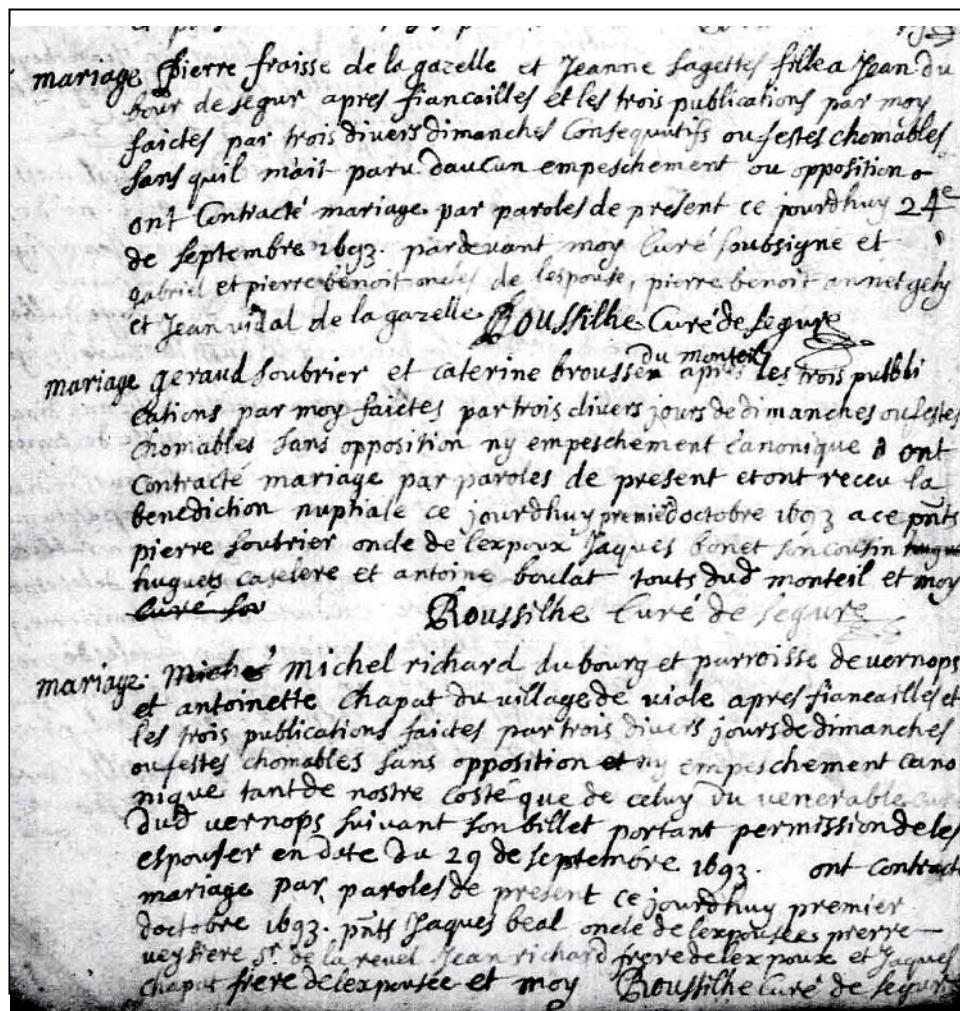 mariage pierre fraisse de la gazelle et Jeanne sagettes fille a Jean du
bour de segur apres fiancailles et les trois publications par moy
faictes par trois divers dimanches Consequutifs ou festes chomables
sans quil m'ait paru daucun empeschement ou opposition
ont Contracté mariage par paroles de present ce jourdhuy 24e
de septembre 1693. pardevant moy Curé soubsigne et
gabriel et pierre benoit oncles de lespouse, pierre benoit annet gely
et Jean vidal de la gazelle Roussilhe Curé de segur
mariage geraud soubrier et caterine brousse du monteil apres les trois publi
cations par moy faictes par trois divers jours de dimanches ou festes
chomables sans opposition ny empeschement canonique ont
Contracté mariage par paroles de present et ont receu la
benediction nuptiale ce jourdhuy premier doctobre 1693 a ce pnts
pierre soubrier oncle de lexpoux Jaques bonet son cousin hugue
hugues caselere et antoine boulat touts dud monteil et moy
Curé sou
Roussilhe Curé de segur
mariage. Miché michel richard du bourg et parroisse de vernops
et antoinette Chapat du village de viale apres fiancailles et
les trois publications faictes par trois divers jours de dimanches
ou festes chomables sans opposition et ny empeschement cano
nique tant de nostre costé que de celuy du venerable curé
dud vernops suivant son billet portant permission de les
espouser en date du 29 de septembre 1693. ont contracté
mariage par paroles de present ce jourdhuy premier
doctobre 1693. pnts Jaques beal oncle de lexpousée pierre
veysiere sr. de la revel Jean richard frere de lexpoux et Jaques
Chapat frere de lexpousée et moy Roussilhe Curé de segur